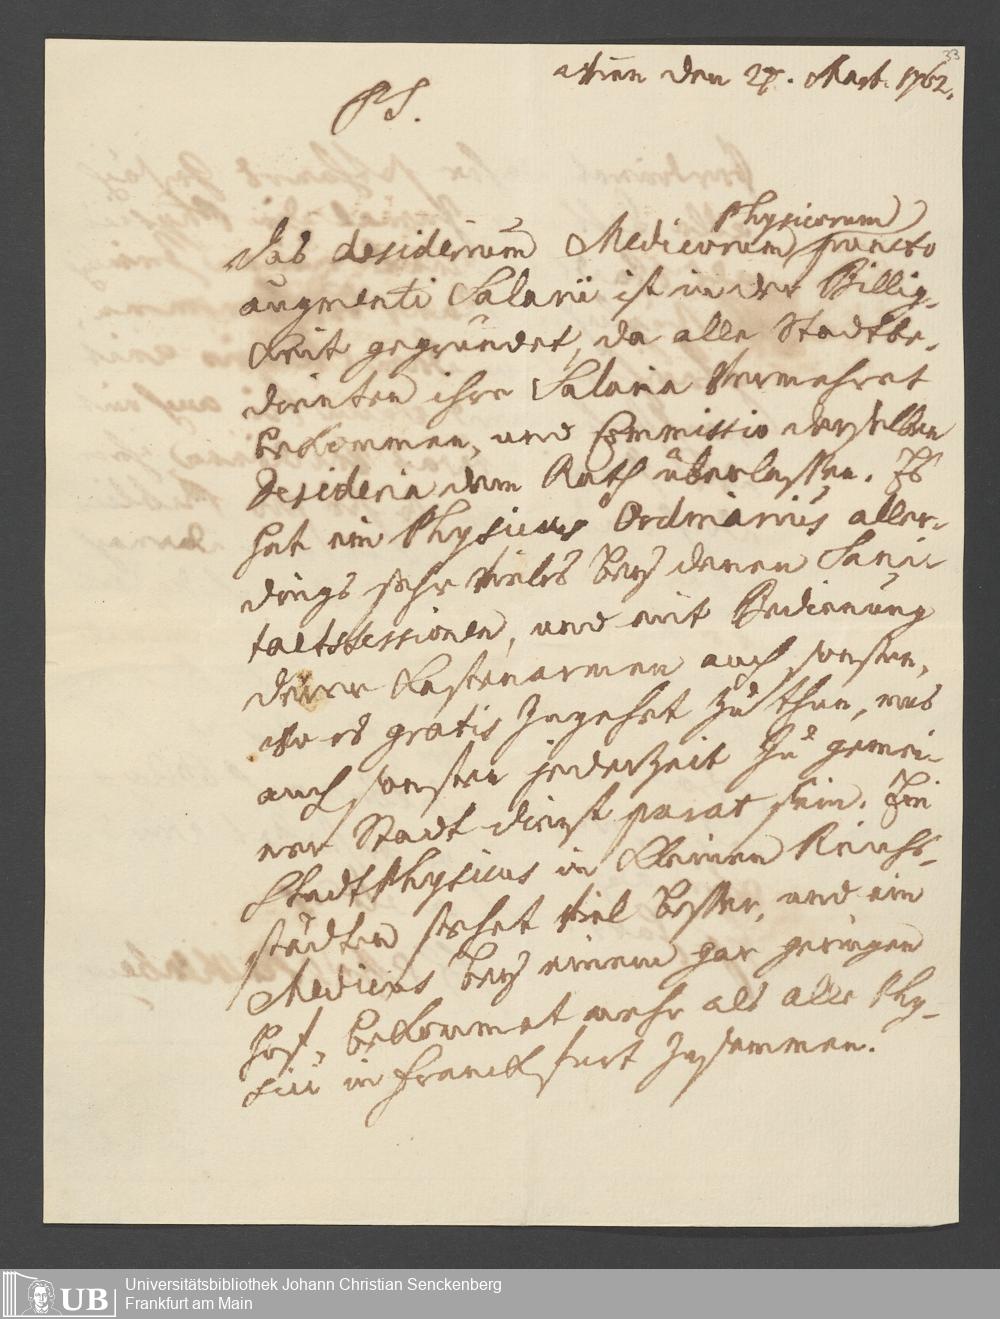 33
Wien den 27. Mart. 1762.
PS.
Physicorum
Das desiderium Medicorum puncto
augmenti Salarii ist in der Billig-
keit gegründet, da alle Stadtbe-
dienten ihre Salaria vermehret
bekommen, und Commissio derselben
Desideria dem Rath überlassen. Es
hat ein Physicus Ordinarius aller-
dings sehr vieles bey denen Sani-
taetssessionen, und mit Bedienung
derer Kastenarmen auch sonsten,
wo es gratis zugehet zu thun, mus
auch sonsten jederzeit zu gemei-
ner Stadt dienst parat sein. Ein
StadtPhysicus in kleinen Reichs-
städten stehet viel besser, und ein
Medicus bey einem gar geringen
Hof, bekommet mehr als alle Phy-
sici in Franckfurt zusammen.
UB
Universitätsbibliothek Johann Christian Senckenberg
Frankfurt am Main